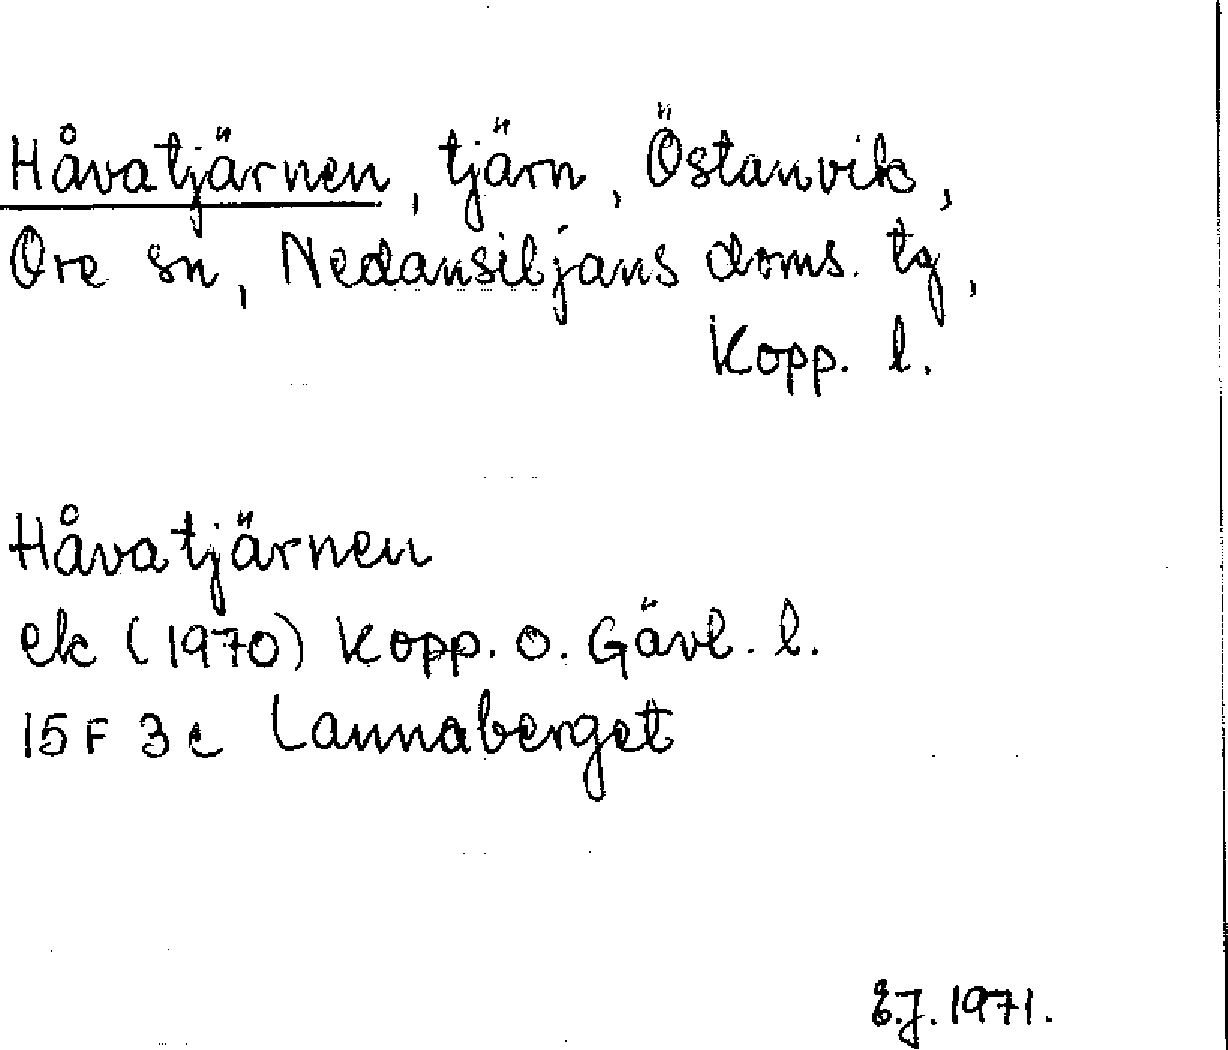 Håvatjärnen, tjärn, Östanvik,
Ore sn, Nedansiljans doms. tg,
Kopp. l.
Håvatjärnen
ek (1970) Kopp. o. Gävl. l.
15 F 3 c Lannaberget
E.J. 1971.